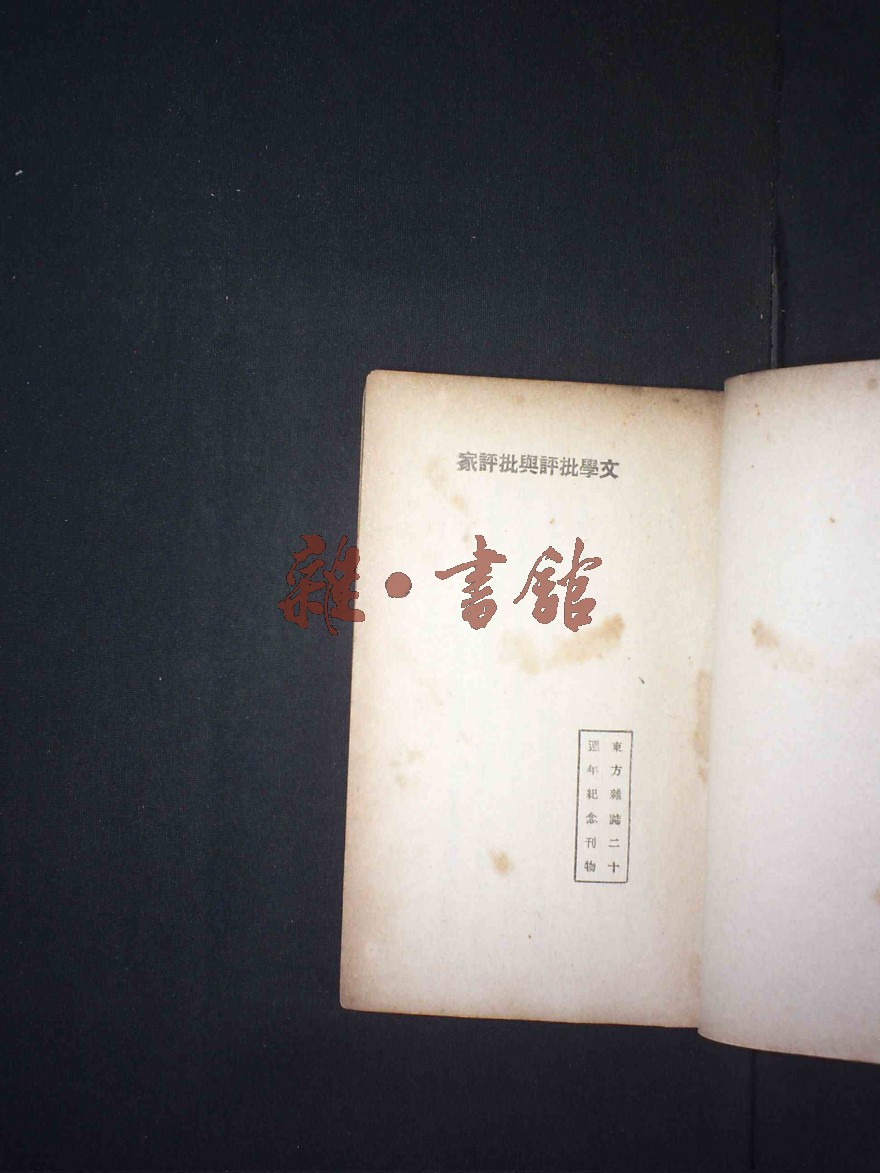 文學批評與批評家
雜·書館
東方雜誌二十
週年紀念刊物